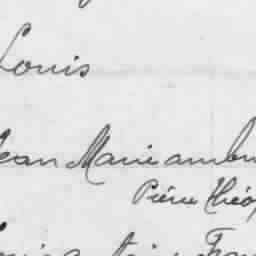 Louis
Jean Marie ambr
Piérre Théop